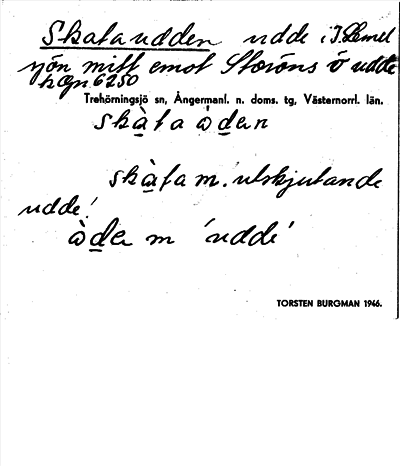 Skataudden udde i I. Lemel
sjön mitt emot Storöns ö udde
kægn 6250
Trehörningsjö sn, Ångermanl. n. doms. tg, Västernorrl. län.
skàta ùden
skàta m. utskjutande
udde!
ùde m 'udde'
TORSTEN BURGMAN 1946.